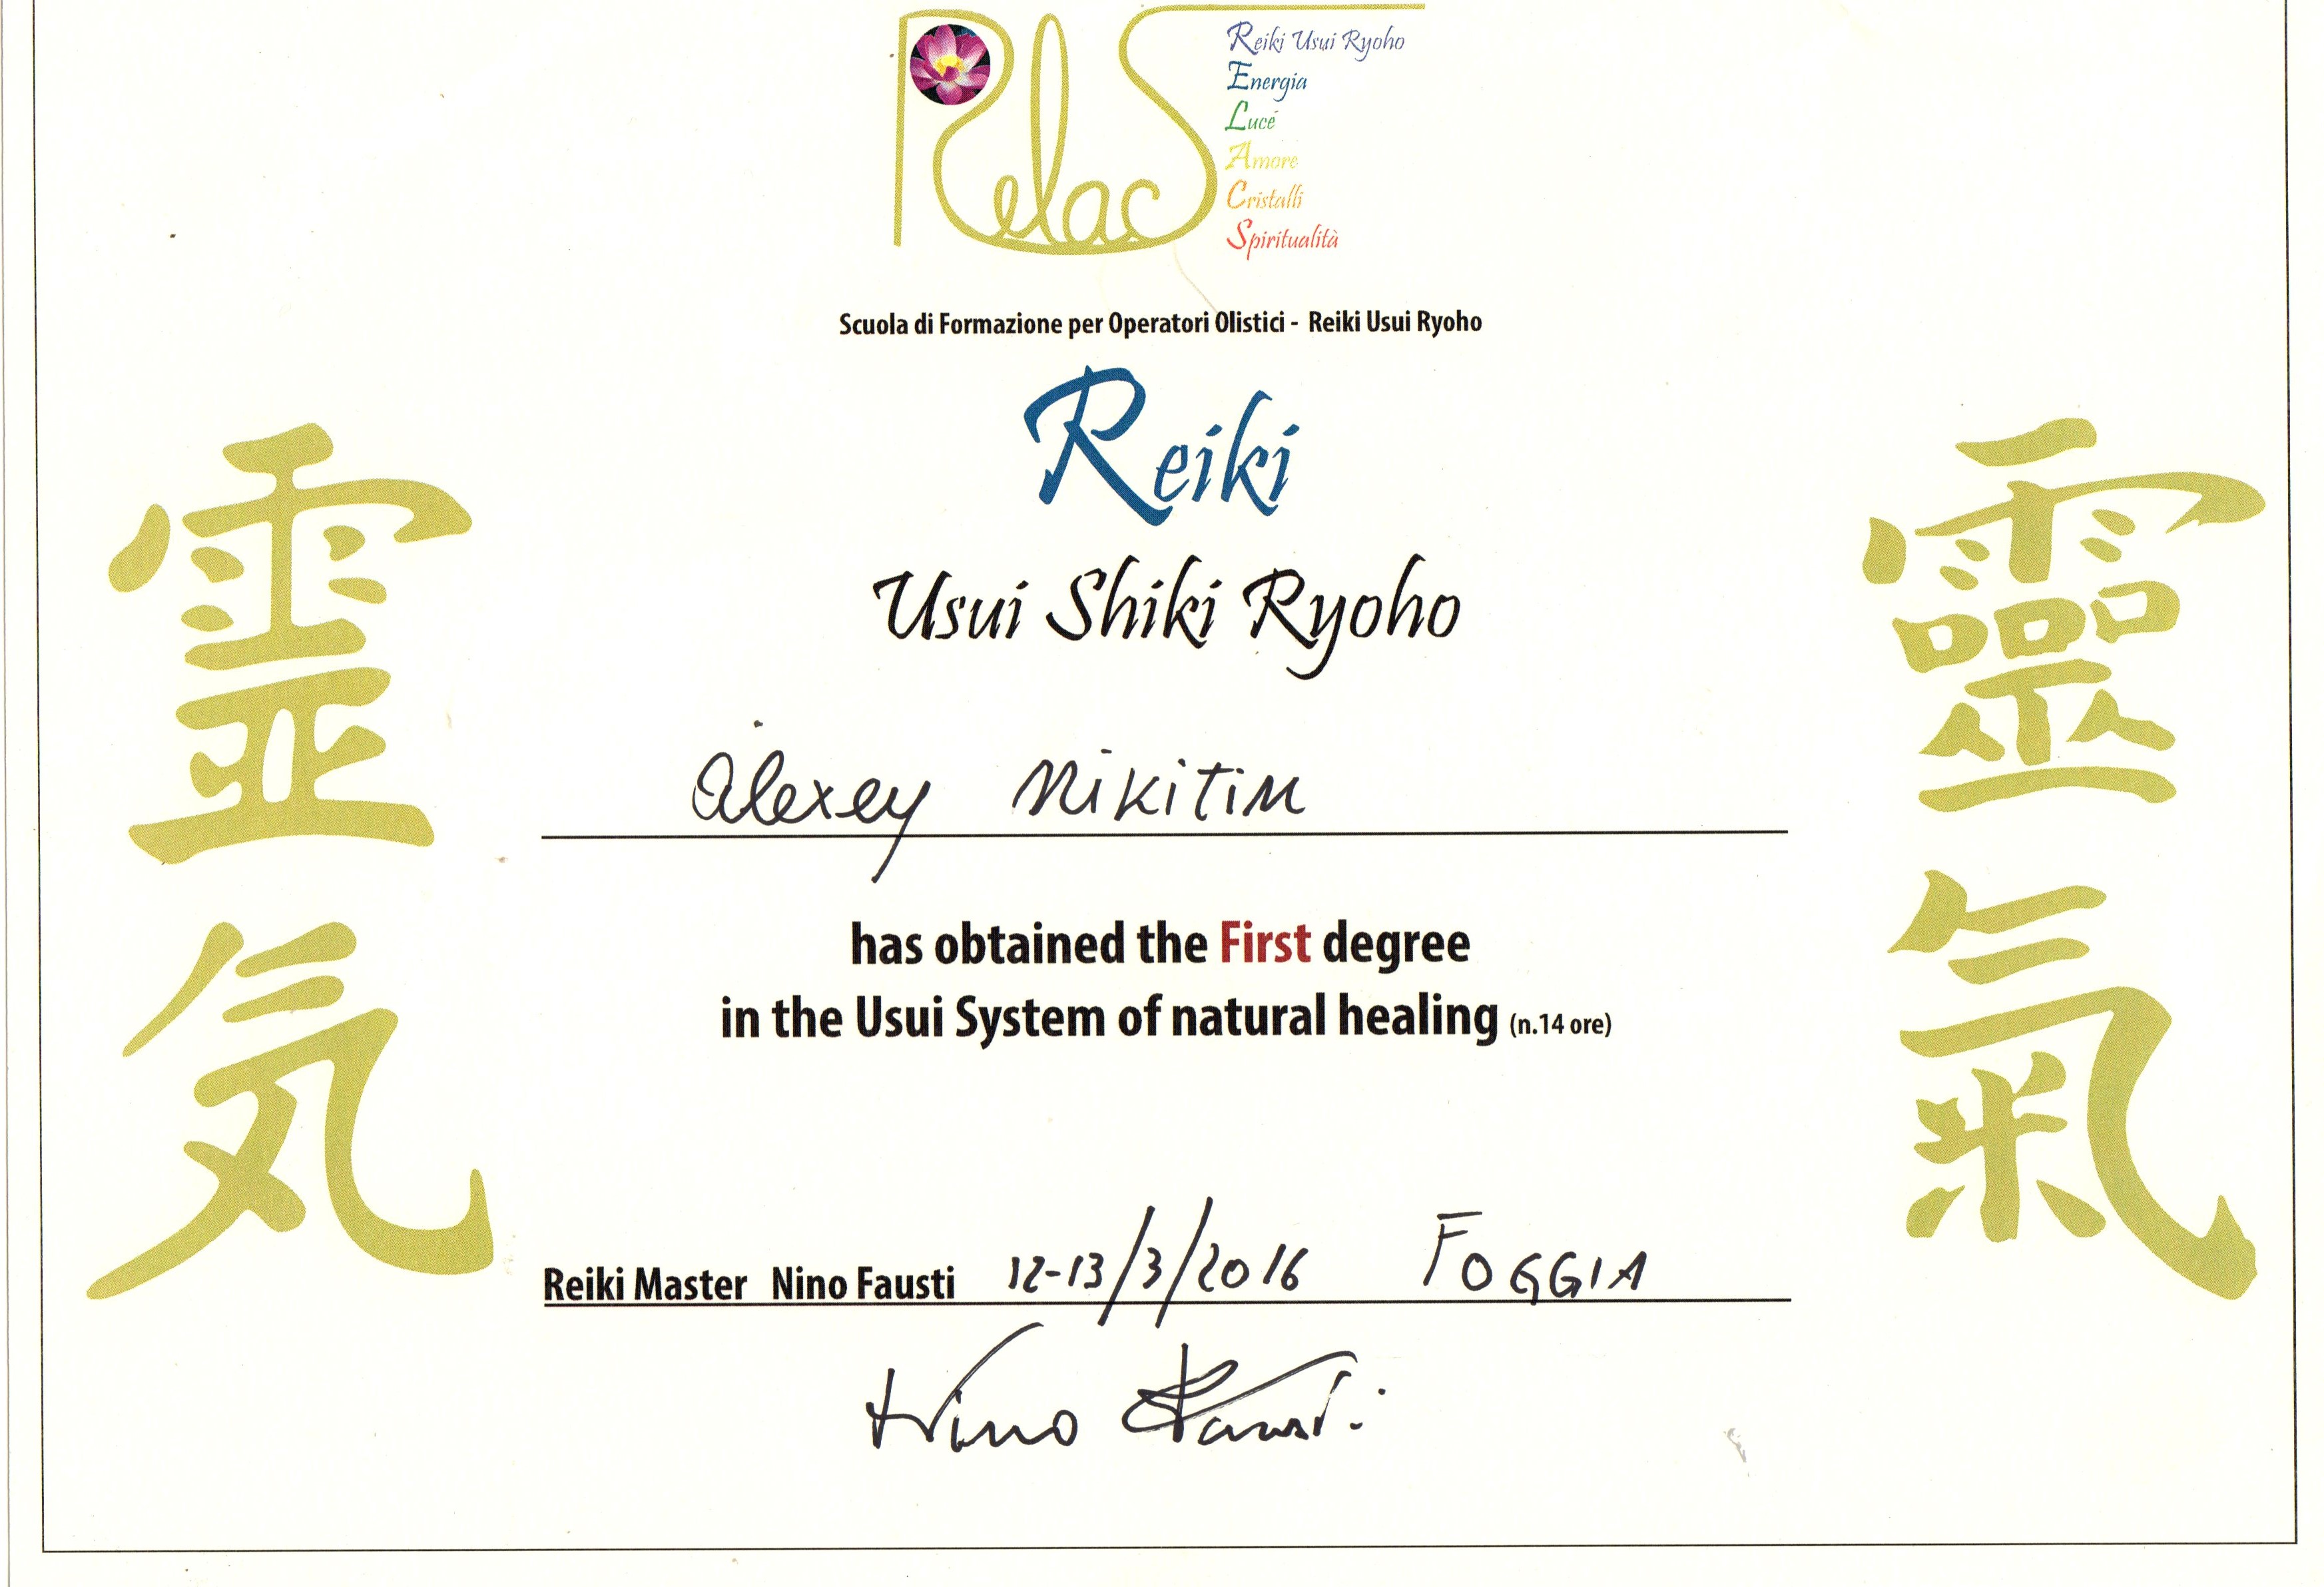 RelacS
Reiki Usui Ryoho
Energia
Luce
Amore
Cristalli
Spiritualità
Scuola di Formazione per Operatori Olistici - Reiki Usui Ryoho
Reiki
Usui Shiki Ryoho
靈氣
霊気
Alexey Nikitin
has obtained the First degree
in the Usui System of natural healing (n.14 ore)
Reiki Master Nino Fausti 12-13/3/2016 FOGGIA
Nino Fausti